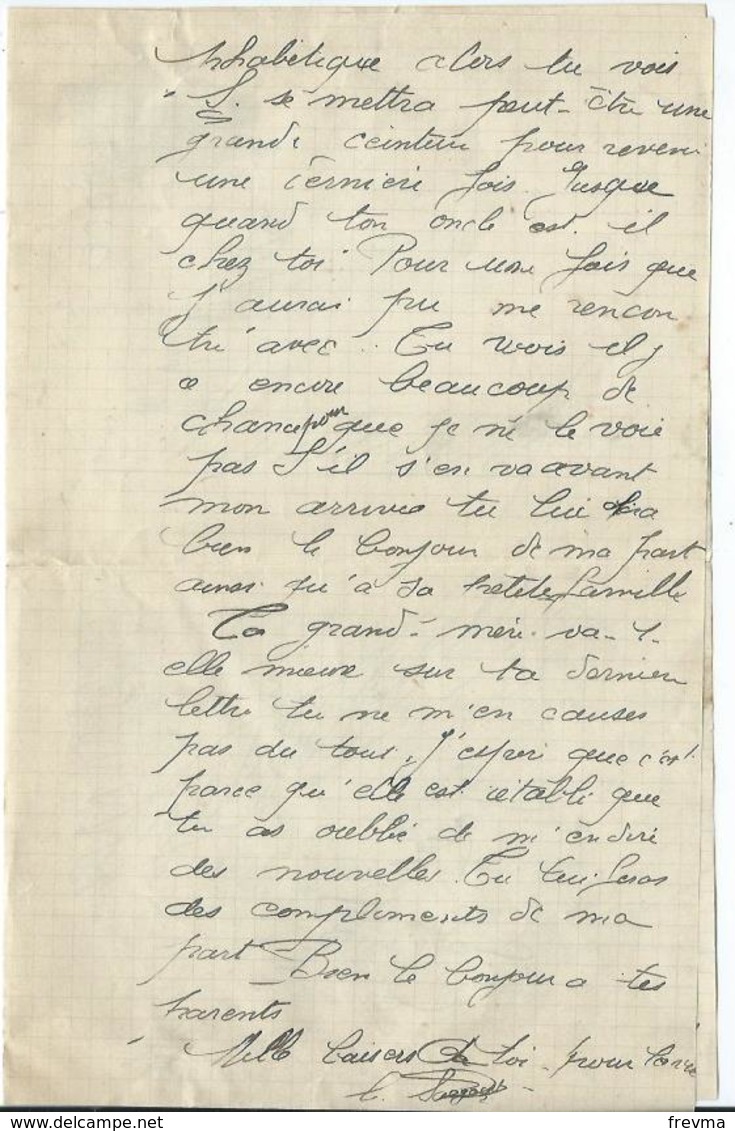 alors tu vois
L. se mettra peut-être une
grande ceinture pour reveni
une dernière fois. Jusque
quand ton oncle est-il
chez toi Pour une fois que
j'aurai pu me rencon
tré avec. Tu vois il y
a encore beaucoup de
chance pour que je ne le voie
pas S'il s'en va avant
mon arrivée tu lui dira
bien le bonjour de ma part
ainsi qu'à sa petite famille
Ta grand-mère va-t-
elle mieux sur ta dernière
lettre tu ne m'en causes
pas du tout, j'espère que c'est
parce qu'elle est rétabli que
tu as oublié de m'en dire
des nouvelles. Tu lui feras
des compliments de ma
part Bien le bonjour a tes
parents
Mille baisers à toi pour la vie
frevma